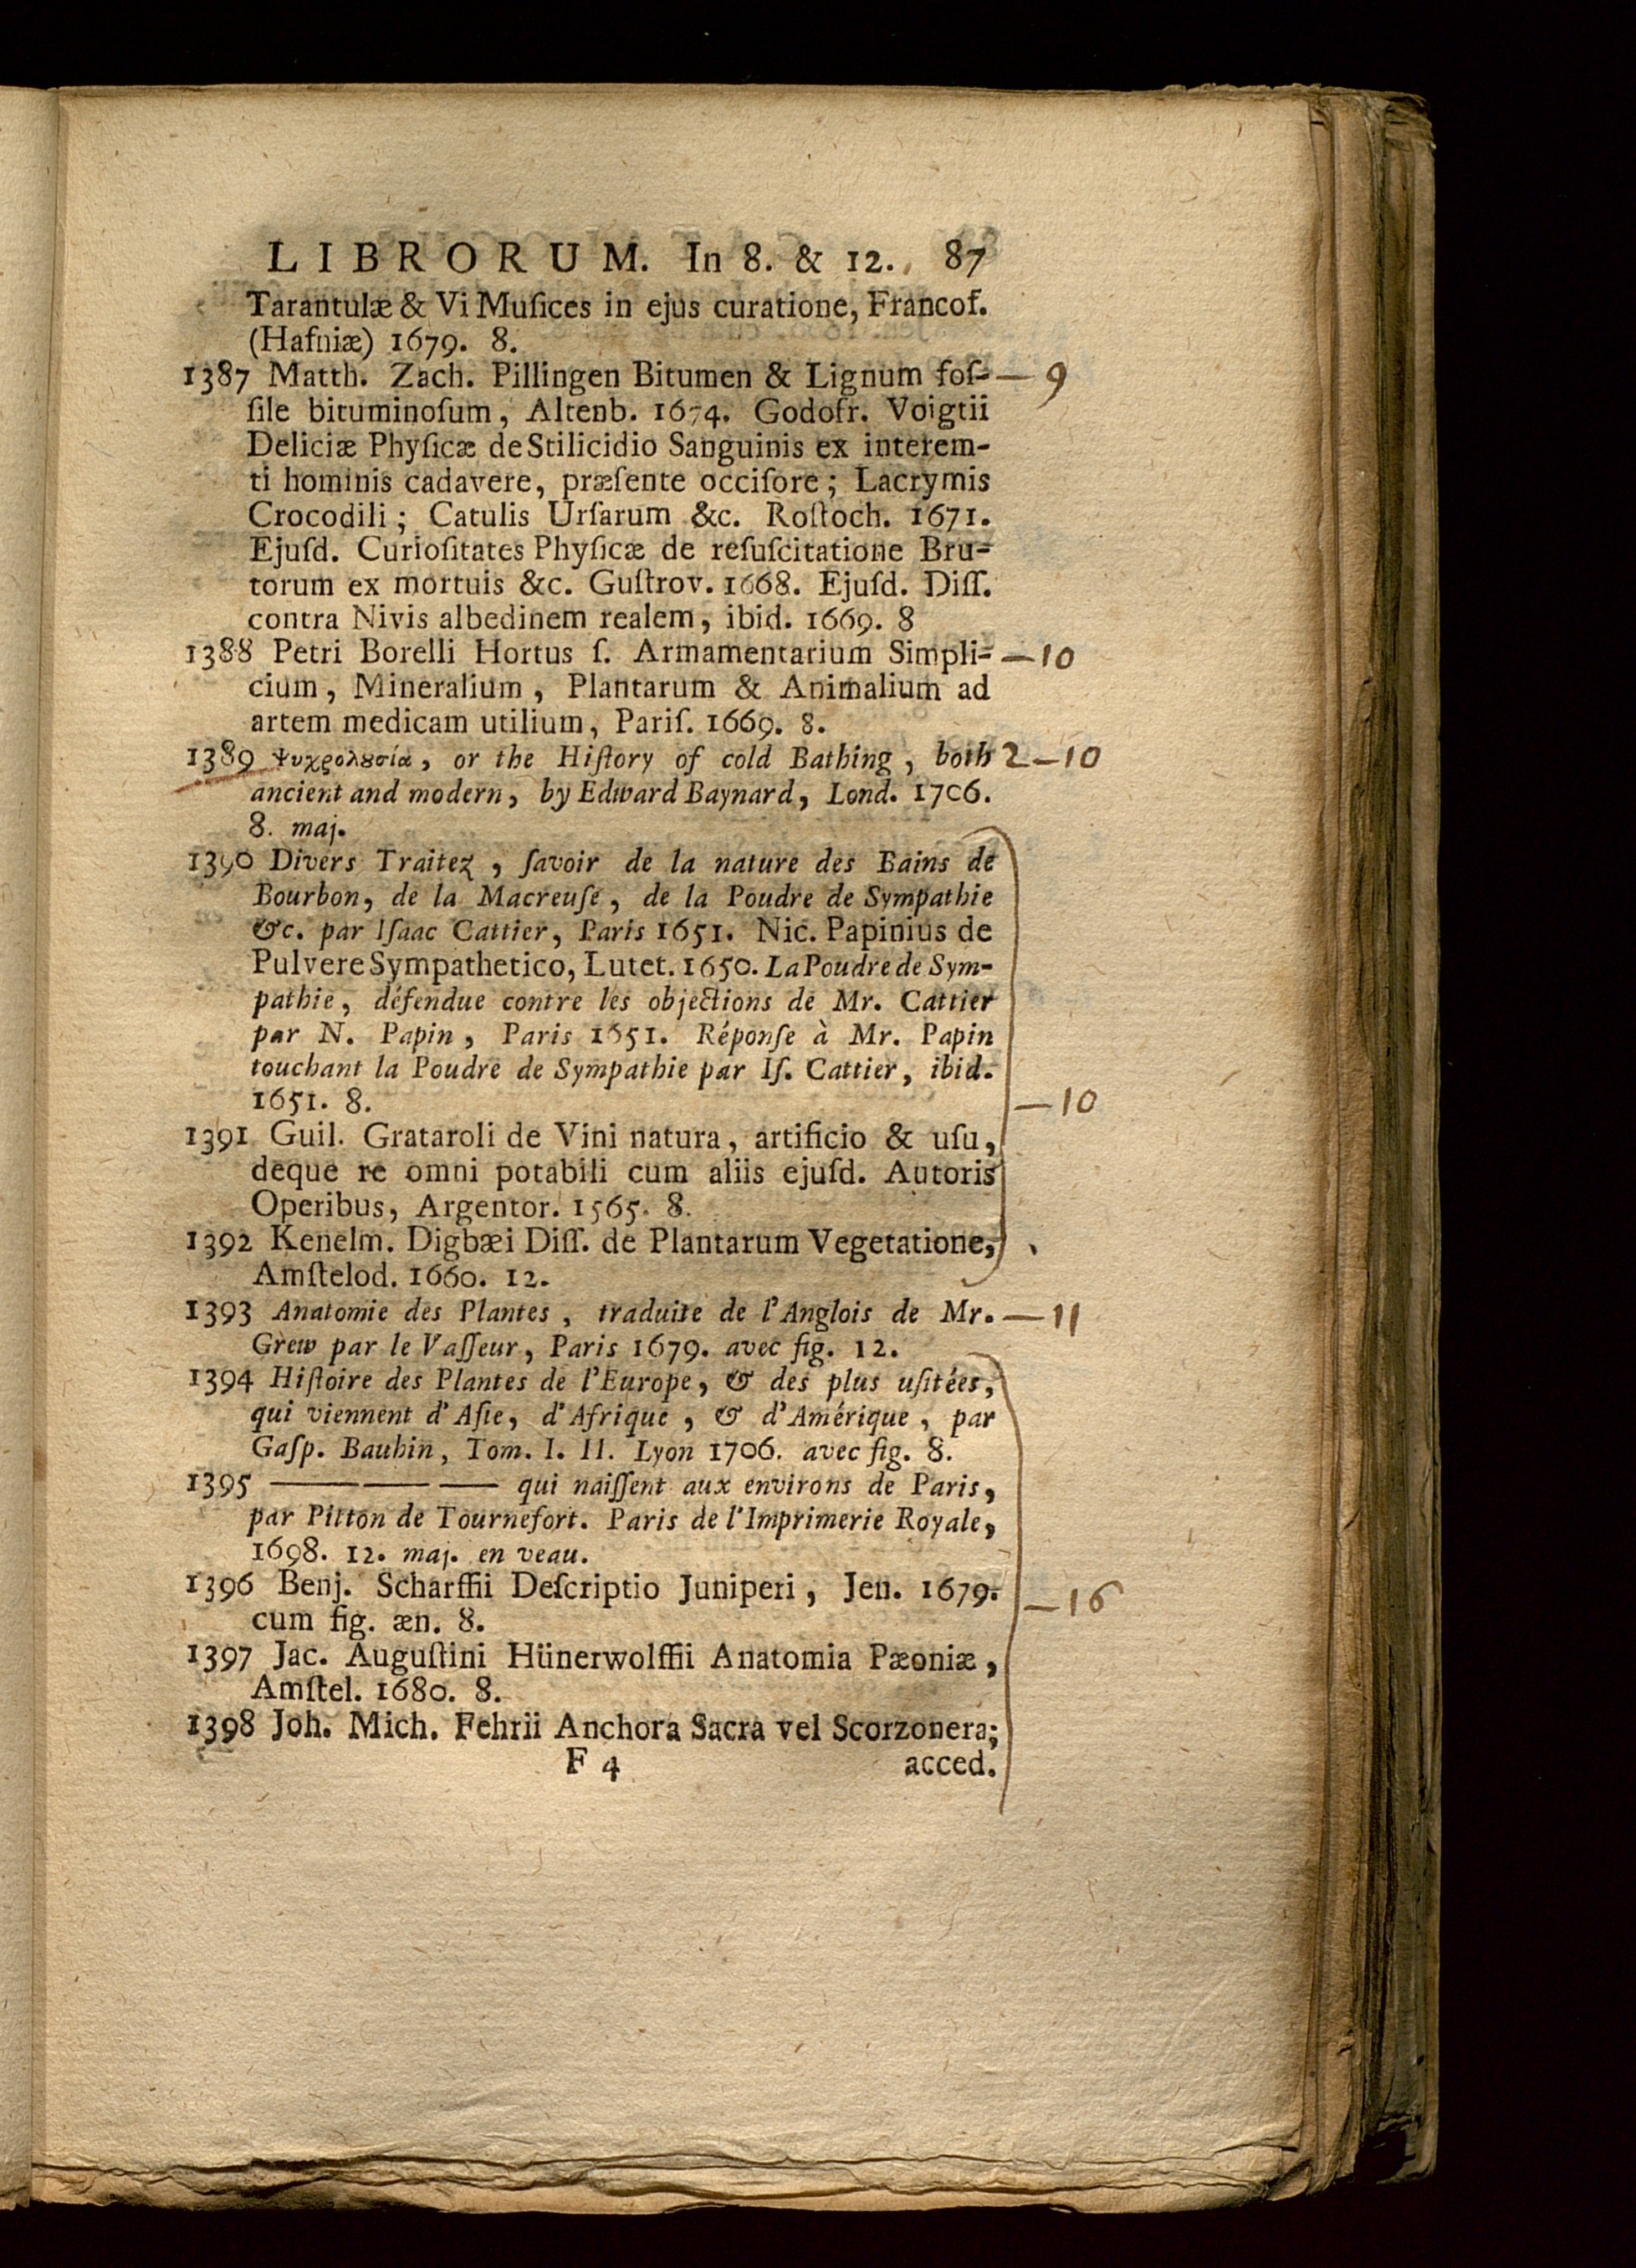 LIBRORUM. In 8. & 12. 87
Tarantulæ & Vi Muſices in ejus curatione, Francof.
(Hafniæ) 1679. 8.
1387 Matth. Zach. Pillingen Bitumen & Lignum foſ- — 9
ſile bituminoſum, Altenb. 1674. Godofr. Voigtii
Deliciæ Phyſicæ de Stilicidio Sanguinis ex interem-
ti hominis cadavere, præſente occiſore; Lacrymis
Crocodili; Catulis Urſarum &c. Roſtoch. 1671.
Ejuſd. Curioſitates Phyſicæ de reſuſcitatione Bru-
torum ex mortuis &c. Guſtrov. 1668. Ejuſd. Diſſ.
contra Nivis albedinem realem, ibid. 1669. 8
1388 Petri Borelli Hortus ſ. Armamentarium Simpli- — 10
cium, Mineralium, Plantarum & Animalium ad
artem medicam utilium, Pariſ. 1669. 8.
1389 Ψυχρολȣσία, or the Hiſtory of cold Bathing, both 2 — 10
ancient and modern, by Edward Baynard, Lond. 1706.
8. maj.
1390 Divers Traitez, ſavoir de la nature des Bains de
Bourbon, de la Macreuſe, de la Poudre de Sympathie
&c. par Iſaac Cattier, Paris 1651. Nic. Papinius de
Pulvere Sympathetico, Lutet. 1650. La Poudre de Sym-
pathie, défendue contre les objections de Mr. Cattier
par N. Papin, Paris 1651. Réponſe à Mr. Papin
touchant la Poudre de Sympathie par Iſ. Cattier, ibid.
1651. 8. — 10
1391 Guil. Grataroli de Vini natura, artificio & uſu,
deque re omni potabili cum aliis ejuſd. Autoris
Operibus, Argentor. 1565. 8.
1392 Kenelm. Digbæi Diſſ. de Plantarum Vegetatione,
Amſtelod. 1660. 12.
1393 Anatomie des Plantes, traduite de l'Anglois de Mr. — 11
Grew par le Vaſſeur, Paris 1679. avec fig. 12.
1394 Hiſtoire des Plantes de l'Europe, & des plus uſitées,
qui viennent d'Aſie, d'Afrique, & d'Amérique, par
Gaſp. Bauhin, Tom. I. II. Lyon 1706. avec fig. 8.
1395 ——— — — qui naiſſent aux environs de Paris,
par Pitton de Tournefort. Paris de l'Imprimerie Royale,
1698. 12. maj. en veau.
1396 Benj. Scharffii Deſcriptio Juniperi, Jen. 1679. — 16
cum fig. æn. 8.
1397 Jac. Auguſtini Hünerwolffii Anatomia Pæoniæ,
Amſtel. 1680. 8.
1398 Joh. Mich. Fehrii Anchora Sacra vel Scorzonera;
F 4 acced.